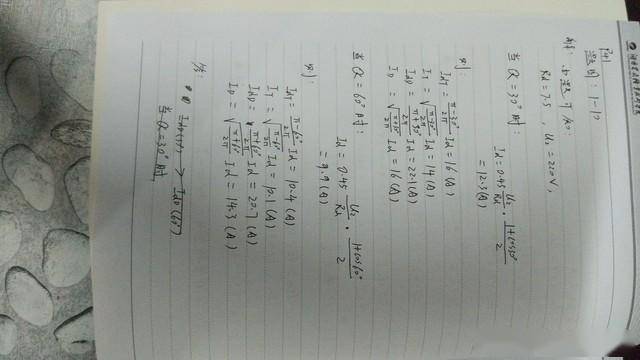 题目: 1-10
解: 由题可知:
Rd = 7.5 , U₂ = 220V,
当 α = 30° 时:
Id = 0.45 U₂/Rd · (1+cos30°)/2
= 12.3(A)
则
IdT = (π-30°)/2π Id = 16(A)
IT = √((π-30°)/2π) Id = 14(A)
IdD = (π+30°)/2π Id = 22.1(A)
ID = √((π+30°)/2π) Id = 16(A)
当 α = 60° 时:
Id = 0.45 U₂/Rd · (1+cos60°)/2
= 9.9(A)
则:
IdT = (π-60°)/2π Id = 10.4(A)
IT = √((π-60°)/2π) Id = 10.1(A)
IdD = (π+60°)/2π Id = 20.7(A)
ID = √((π+60°)/2π) Id = 14.3(A)
当 α = 30° 时